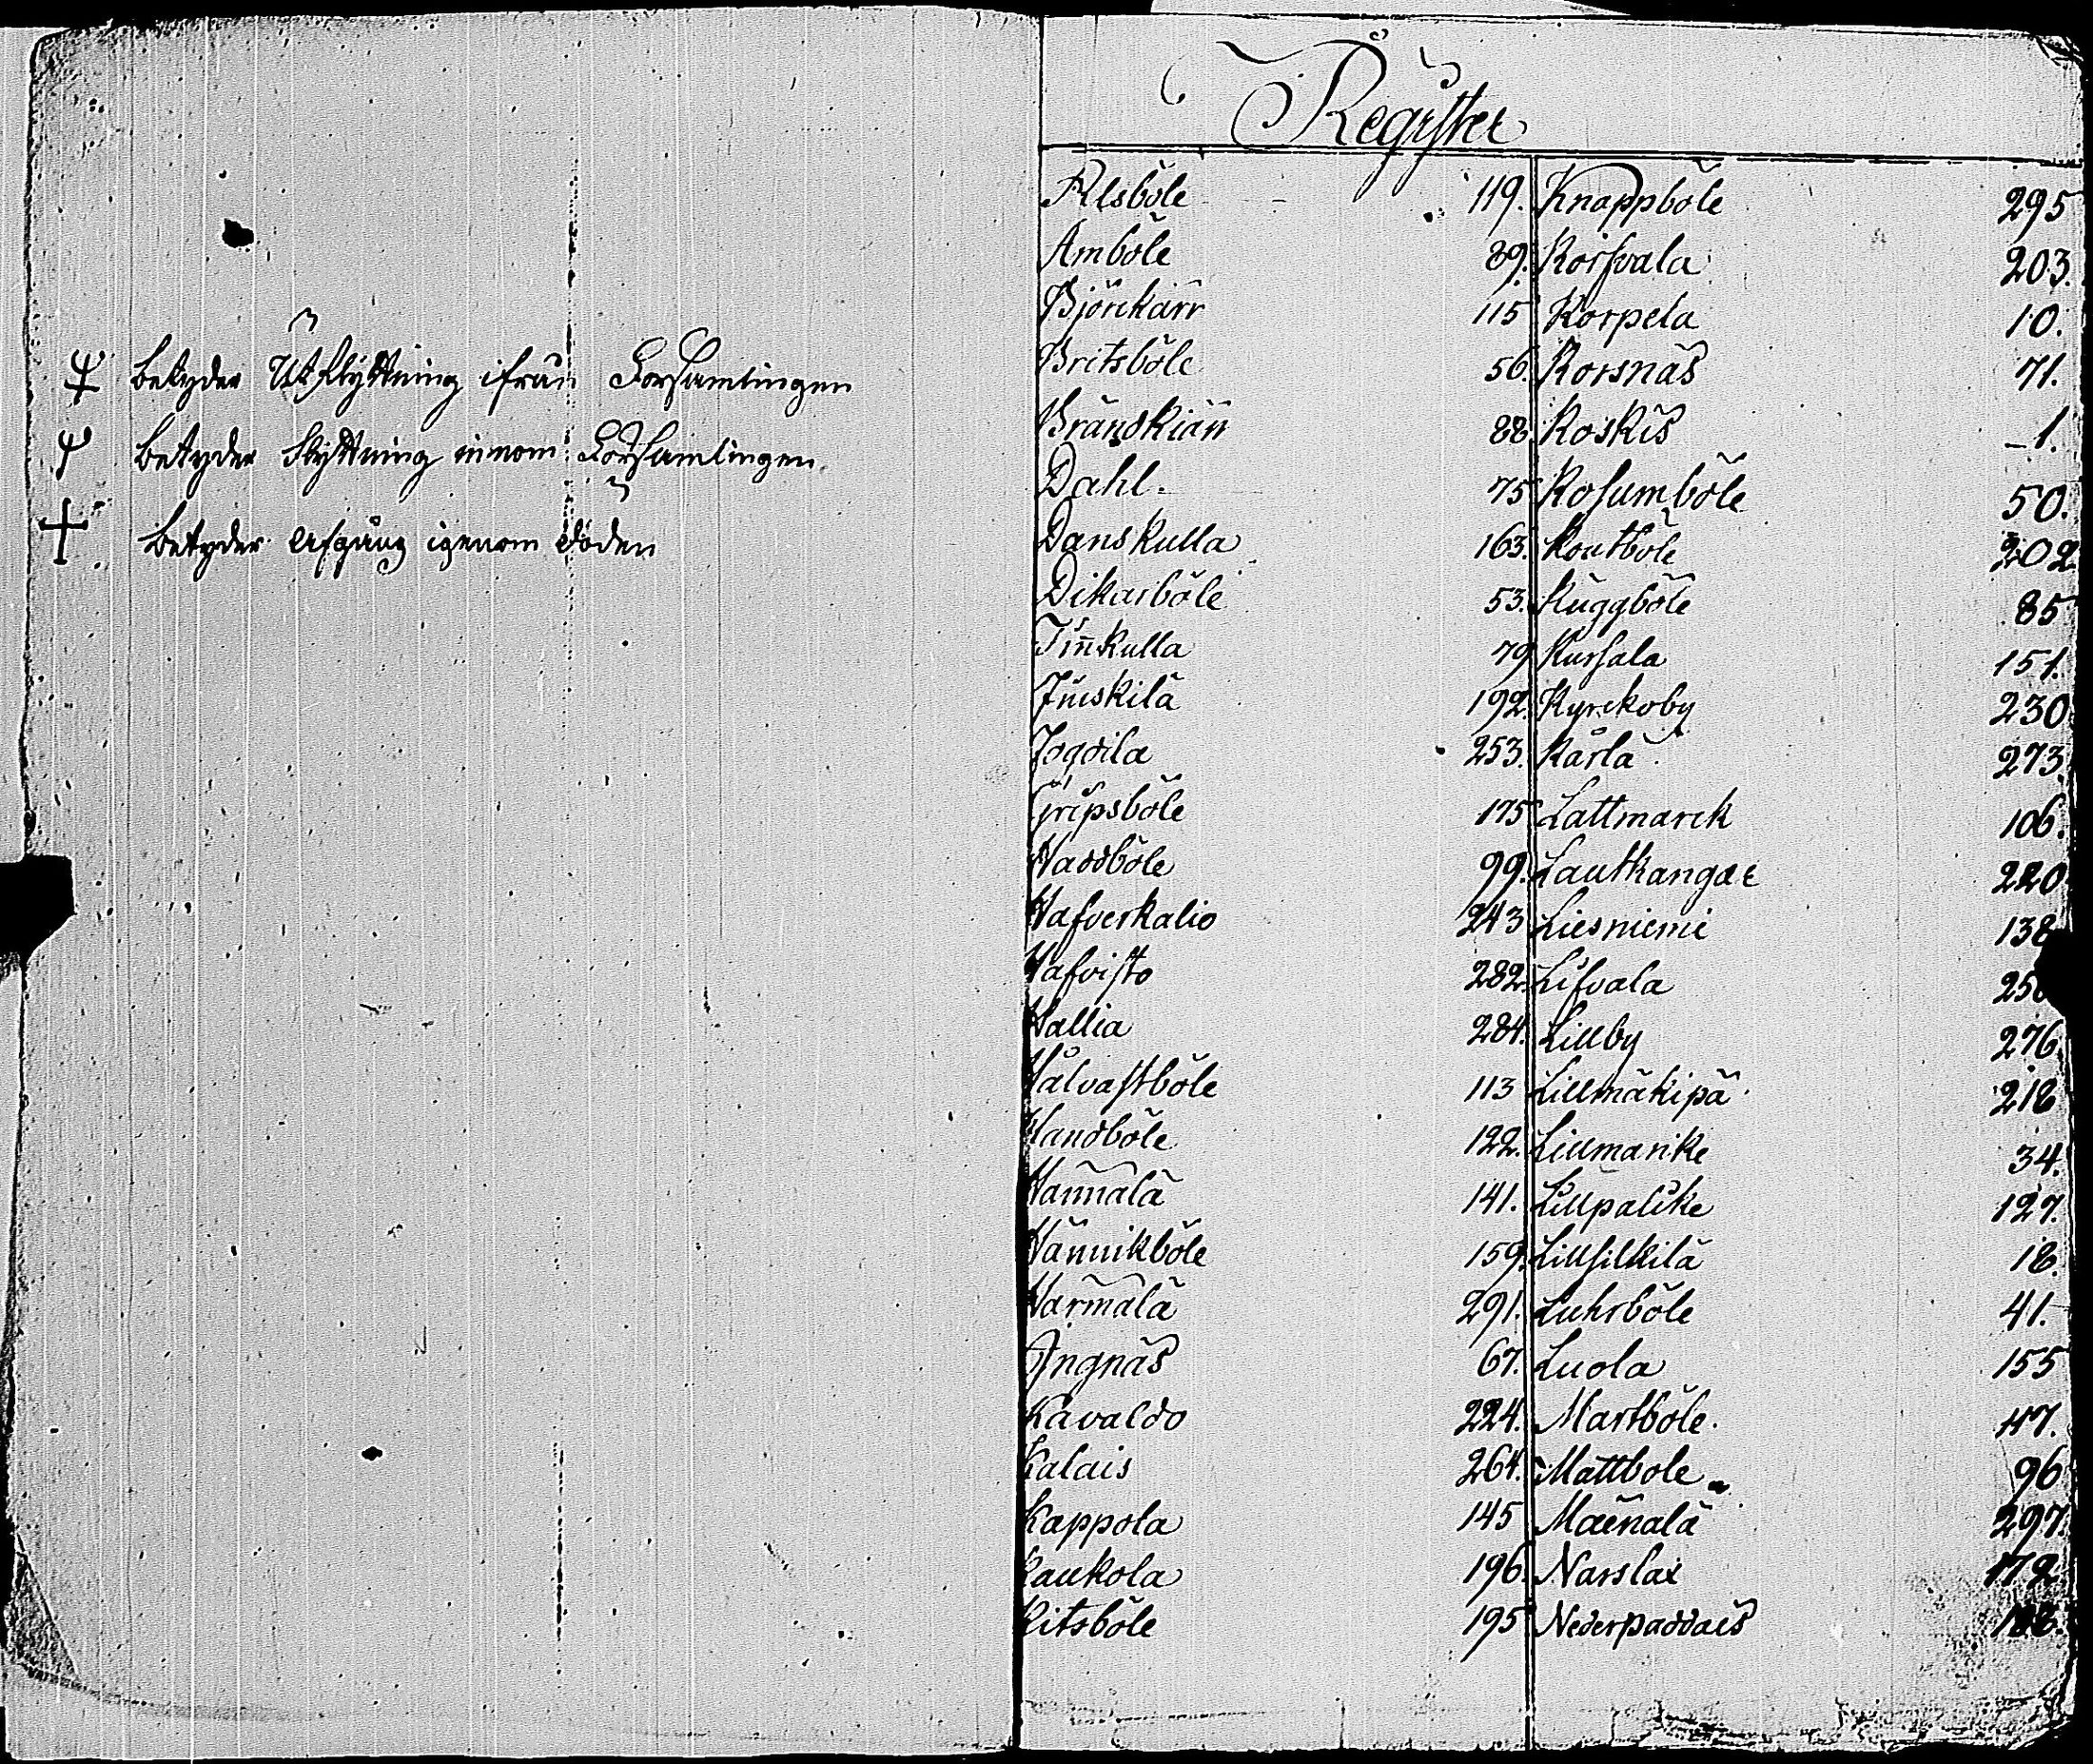 betyder Utflyttning ifrån Församlingen
betyder flyttning innom Församlingen
betyder Afgång igenom döden
Register
Alsböle 119.
Amböle 89.
Björckärr 115
Britsböle 56.
Brändkiärr 88
Dahl. 75
Danskulla 163.
Dikarböle 53.
Finnkulla 79
Fuiskilä 192.
Fogdila 253.
Gripsböle 175
Haddböle 99.
Hafverkalio 243
Hafvisto 282.
Hallia 284.
Halvastböle 113
Handböle 122.
Hannala 141.
Hännikböle 159.
Härmälä 291.
Ingnäs 67.
Kavaldo 224.
Kalais 264.
Kappola 145
Kaukola 196.
Kitsböle 195
Knappböle 295
Koifvala 203.
Korpela 10.
Korsnäs 71.
Koskis 1.
Kosumböle 50.
Koutböle 202
Kuggböle 85
Kursala 151.
Kyrckoby 230
Kärla 273.
Lattmarck 106.
Lautkangar 220
Liesniemi 138
Lifvala
Lillby 276.
Lillmäkipä 218
Lillmanke 34.
Lillpalike 127.
Lillsilkilä 18.
Luhrböle 41.
Luola 155
Martböle. 47.
Mattböle 96
Mäenalä 297.
Narslax 172
Nederpaddais